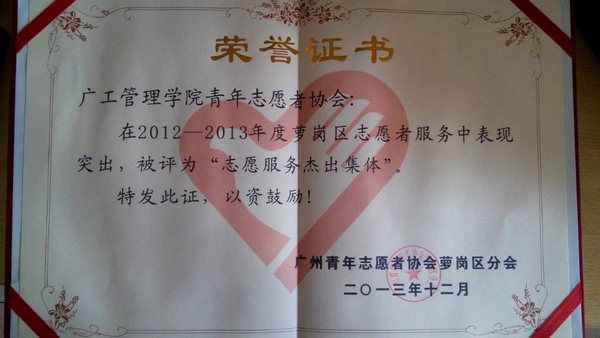 荣誉证书
广工管理学院青年志愿者协会：
在2012—2013年度萝岗区志愿者服务中表现
突出，被评为“志愿服务杰出集体”。
特发此证，以资鼓励！
广州青年志愿者协会萝岗区分会
二〇一三年十二月